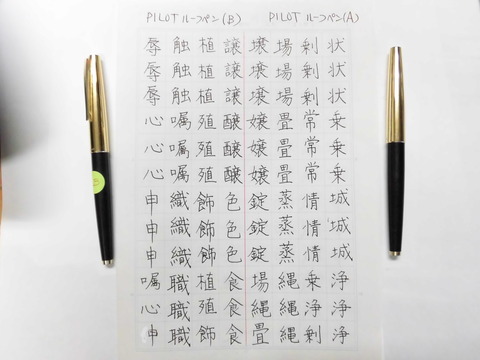 PILOT ルーフペン(B)
PILOT ルーフペン(A)
状状状乗乗乗城城城浄浄浄
剰剰剰常常常情情情乗浄剰
場場場畳畳畳蒸蒸蒸縄縄縄
壌壌壌嬢嬢嬢錠錠錠場縄畳
譲譲譲醸醸醸色色色食食食
植植植殖殖殖飾飾飾植殖飾
触触触嘱嘱嘱織織織職職職
辱辱辱心心心申申申嘱心申